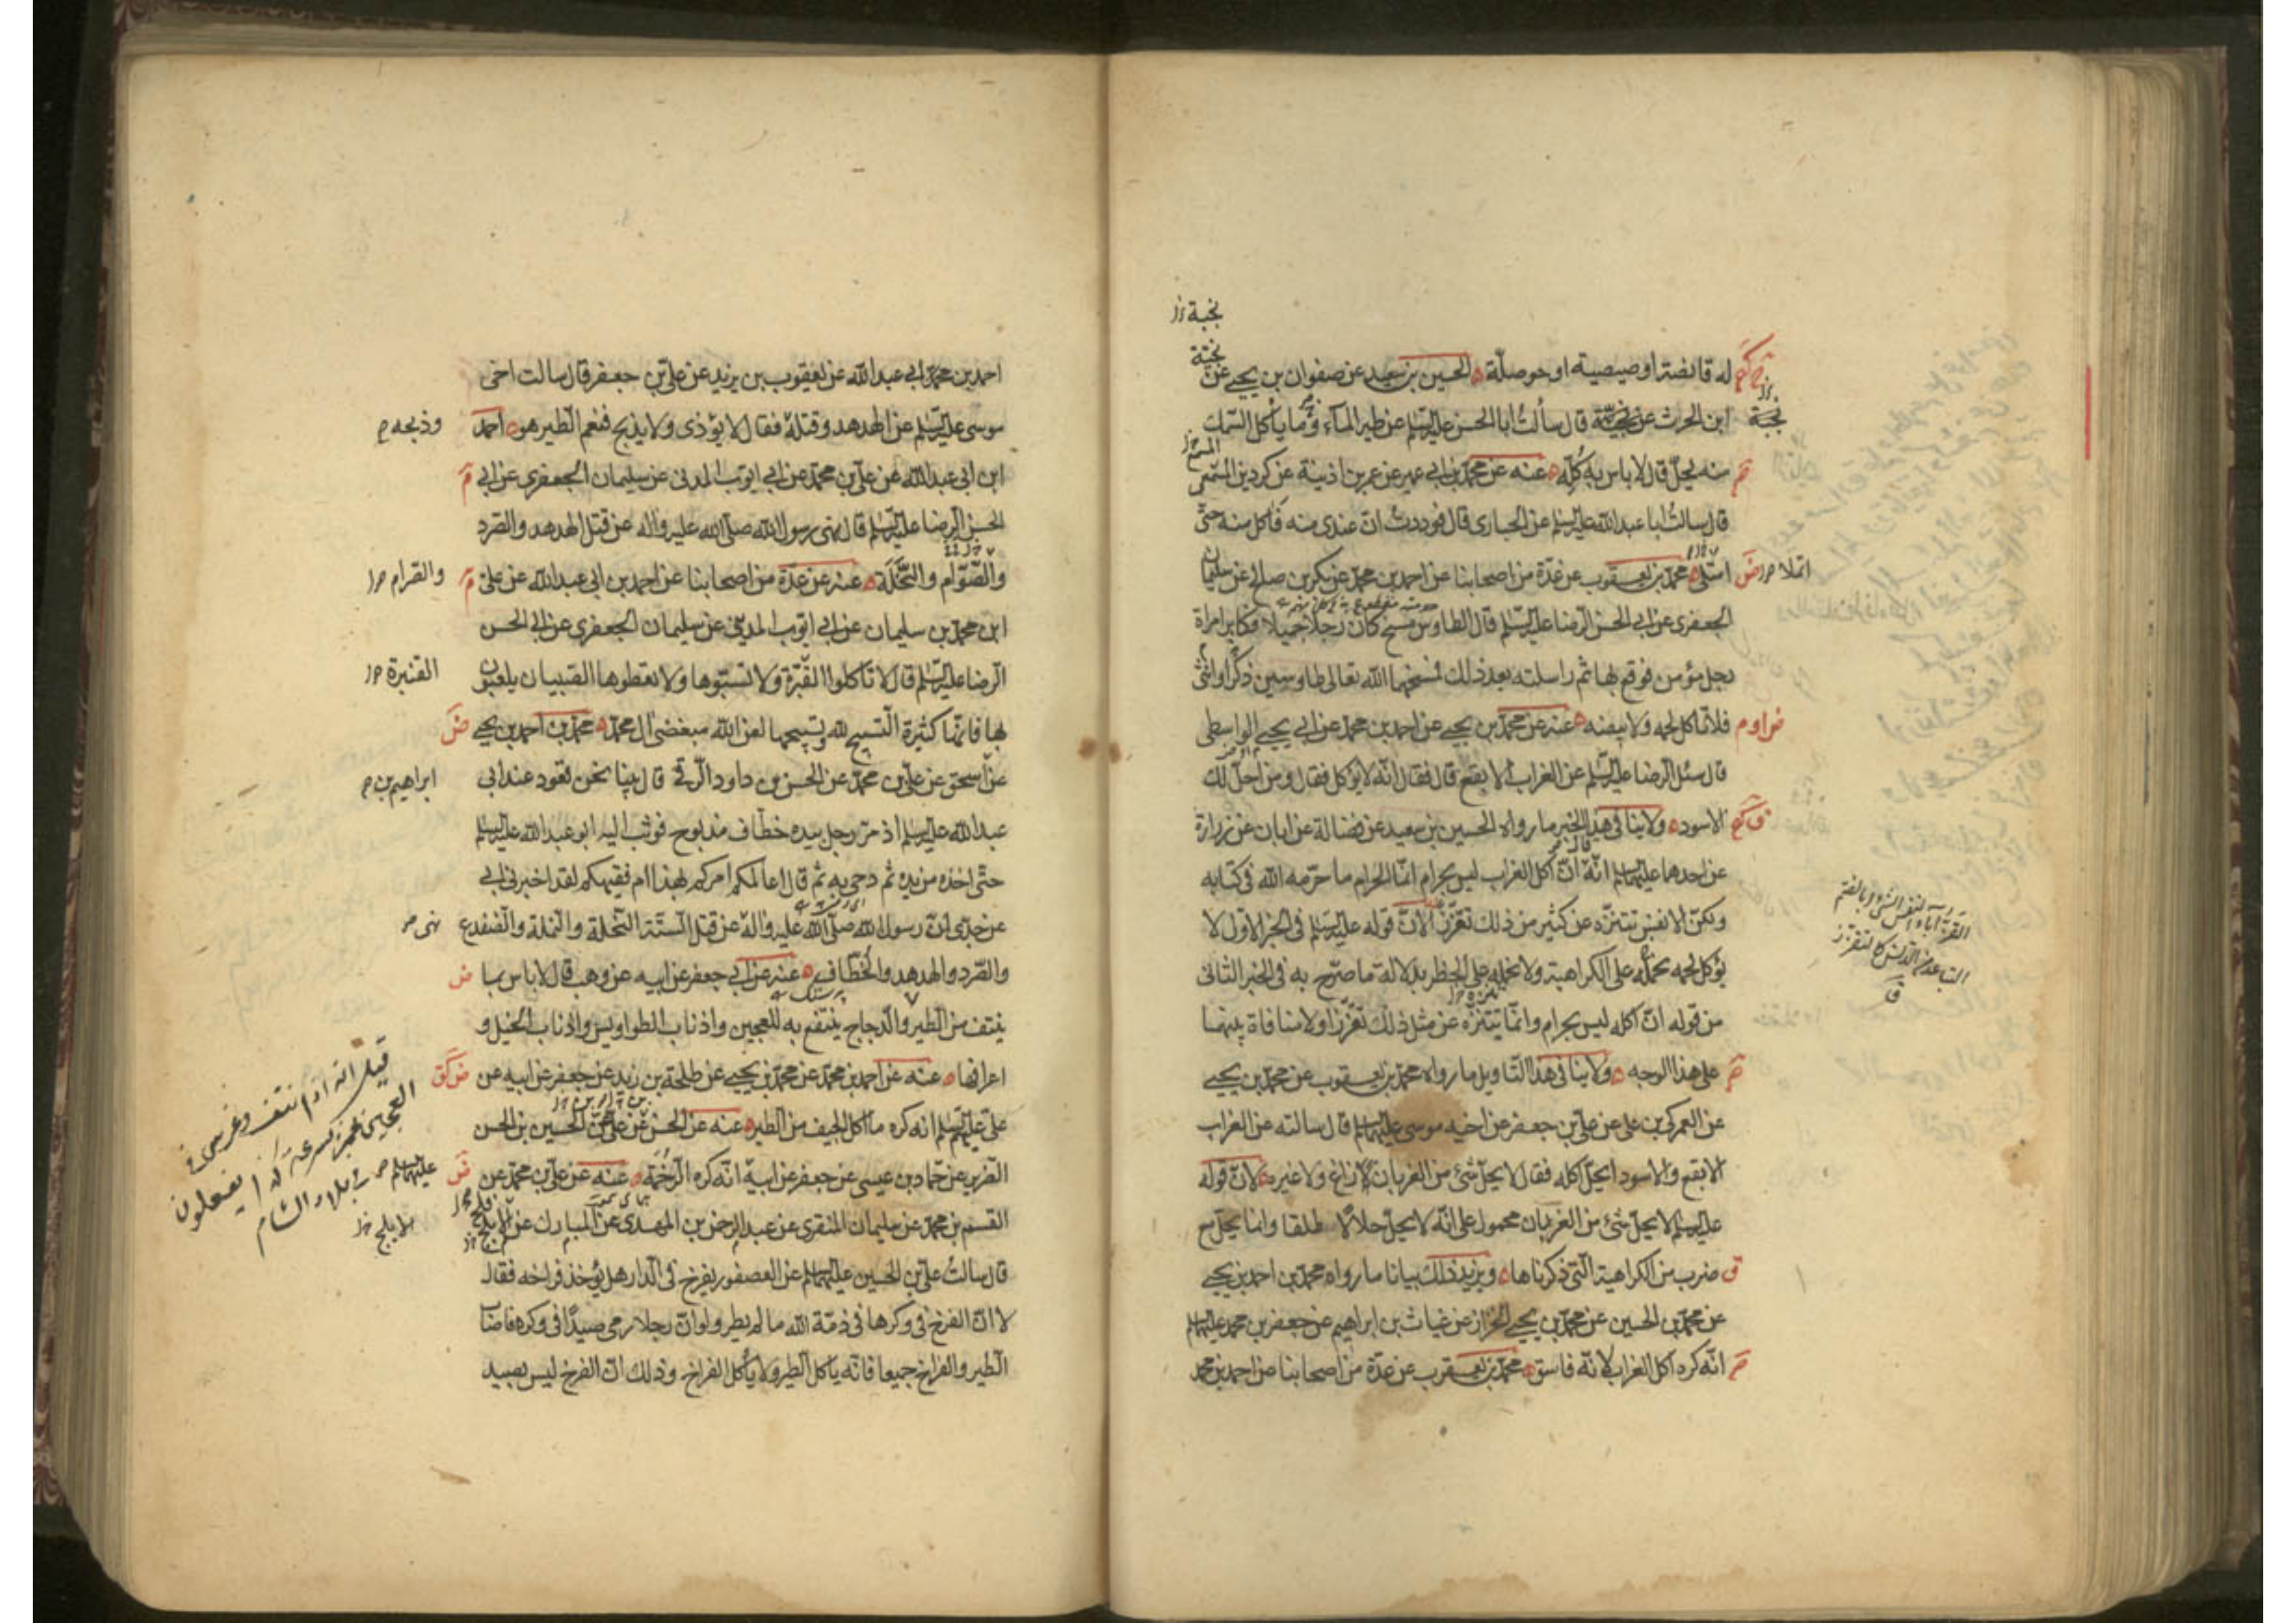 نجبة خ ل
نجبة
له قانصة او صيصية او حوصلة الحسين بن سعيد عن صفوان بن يحيى عن
نجبة
ابن الحرث عن نجية قال سألت ابا الحسن عليه السلم عن طير الماء وما يأكل السمك
منه يحل قال لا باس به كله عنه عن محمد بن ابي عمير عن عمر بن اذينة عن كردين المسمعي
قال سالت ابا عبد الله عليه السلم عن الحبارى قال فوددت ان عندى منه فآكل منه حتى
امتلى محمد بن يعقوب عن عدة من اصحابنا عن احمد بن محمد عن بكر بن صالح عن سليمان
الجعفرى عن ابى الحسن الرضا عليه السلم قال الطاوس مسخ كان رجلا جميلا فكابر امراة
رجل مؤمن فوقع بها ثم راسلته بعد ذلك فمسخهما الله تعالى طاوسين ذكرا وانثى
فلا تأكل لحمه ولا بيضه عنه عن محمد بن يحيى عن احمد بن محمد عن ابى يحيى الواسطى
قال سئل الرضا عليه السلم عن الغراب الابقع قال فقال انه لا يؤكل فقال ومن احل لك
الاسود ولا ينافى هذا الخبر ما رواه الحسين بن سعيد عن فضالة عن ابان عن زرارة
عن احدهما عليهما السلم انه ان اكل الغراب ليس بحرام انما الحرام ما حرمه الله فى كتابه
ولكن الانفس تتنزه عن كثير من ذلك تقززا لان قوله عليه السلم فى الخبر الاول لا
يؤكل لحمه نحمله على الكراهية ولا نحمله على الحظر بدلالة ما صرح به فى الخبر الثانى
من قوله ان اكله ليس بحرام وانما يتنزه عن مثل ذلك تقززا ولا منافاة بينهما
على هذا الوجه ولا ينافى هذا التاويل ما رواه محمد بن يعقوب عن محمد بن يحيى
عن العمركى بن على عن على بن جعفر عن اخيه موسى عليهما السلم قال سالته عن الغراب
الابقع والاسود ايحل اكله فقال لا يحل شئ من الغربان لا زاغ ولا غيره لان قوله
عليه السلم لا يحل شئ من الغربان محمول على انه لا يحل حلالا طلقا وانما يحل مع
ضرب من الكراهية التى ذكرناها ويزيد ذلك بيانا ما رواه محمد بن احمد بن يحيى
عن محمد بن الحسين عن محمد بن يحيى الخزاز عن غياث بن ابراهيم عن جعفر بن محمد عليهما السلم
انه كره اكل الغراب لانه فاسق محمد بن يعقوب عن عدة من اصحابنا عن احمد بن محمد
احمد بن محمد ابى عبد الله عن يعقوب بن يزيد عن على بن جعفر قال سالت اخى
موسى عليه السلم عن الهدهد وقتله فقال لا يؤذى ولا يذبح فنعم الطير هو احمد
وذبحه
ابن ابى عبد الله عن على بن محمد عن ابى ايوب المدنى عن سليمان الجعفرى عن ابى
الحسن الرضا عليه السلم قال نهى رسول الله صلى الله عليه واله عن قتل الهدهد والصرد
والصوام والنحلة عنه عن عدة من اصحابنا عن احمد بن ابى عبد الله عن على
والصرام
ابن محمد بن سليمان عن ابى ايوب المدينى عن سليمان الجعفرى عن ابى الحسن
الرضا عليه السلم قال لا تأكلوا القبرة ولا تسبوها ولا تعطوها الصبيان يلعبون
القنبرة
بها فانها كثيرة التسبيح لله وتسبيحها لعن الله مبغضى ال محمد محمد بن احمد بن يحيى
عن اسحق عن على بن محمد عن الحسن بن داود الرقى قال بينا نحن قعود عند ابى
ابراهيم بن
عبد الله عليه السلم اذ مر رجل بيده خطاف مذبوح فوثب اليه ابو عبد الله عليه السلم
حتى اخذه من يده ثم دحى به ثم قال اعالمكم امركم بهذا ام فقيهكم لقد اخبرنى ابى
عن جدى ان رسول الله صلى الله عليه واله عن قتل الستة النحلة والنملة والضفدع
نهى
والصرد والهدهد والخطاف عنه عن ابى جعفر عن ابيه عن وهب قال لا باس بما
ينتف من الطير والدجاج ينتفع به للعجين واذناب الطواويس واذناب الخيل و
اعرافها عنه عن احمد بن محمد عن محمد بن يحيى عن طلحة بن زيد عن جعفر عن ابيه عن
على عليهم السلم انه كره ما اكل الجيف من الطير عنه عن الحسن عن على عن الحسين بن الحسن
الضرير عن حماد بن عيسى عن جعفر عن ابيه انه كره الرخمة عنه عن على بن محمد عن
عليهما السلم
القسم بن محمد عن سليمان المنقرى عن عبد الرحمن بن المهدى عن المبارك عن الافلح
قال سالت على بن الحسين عليهما السلم عن العصفور يفرخ فى الدار هل يؤخذ فراخه فقال
لا ان الفرخ فى وكرها فى ذمة الله ما لم يطر ولو ان رجلا رمى صيدا فى وكره فاصاب
الطير والفراخ جميعا فانه ياكل الطير ولا ياكل الفراخ وذلك ان الفرخ ليس بصيد